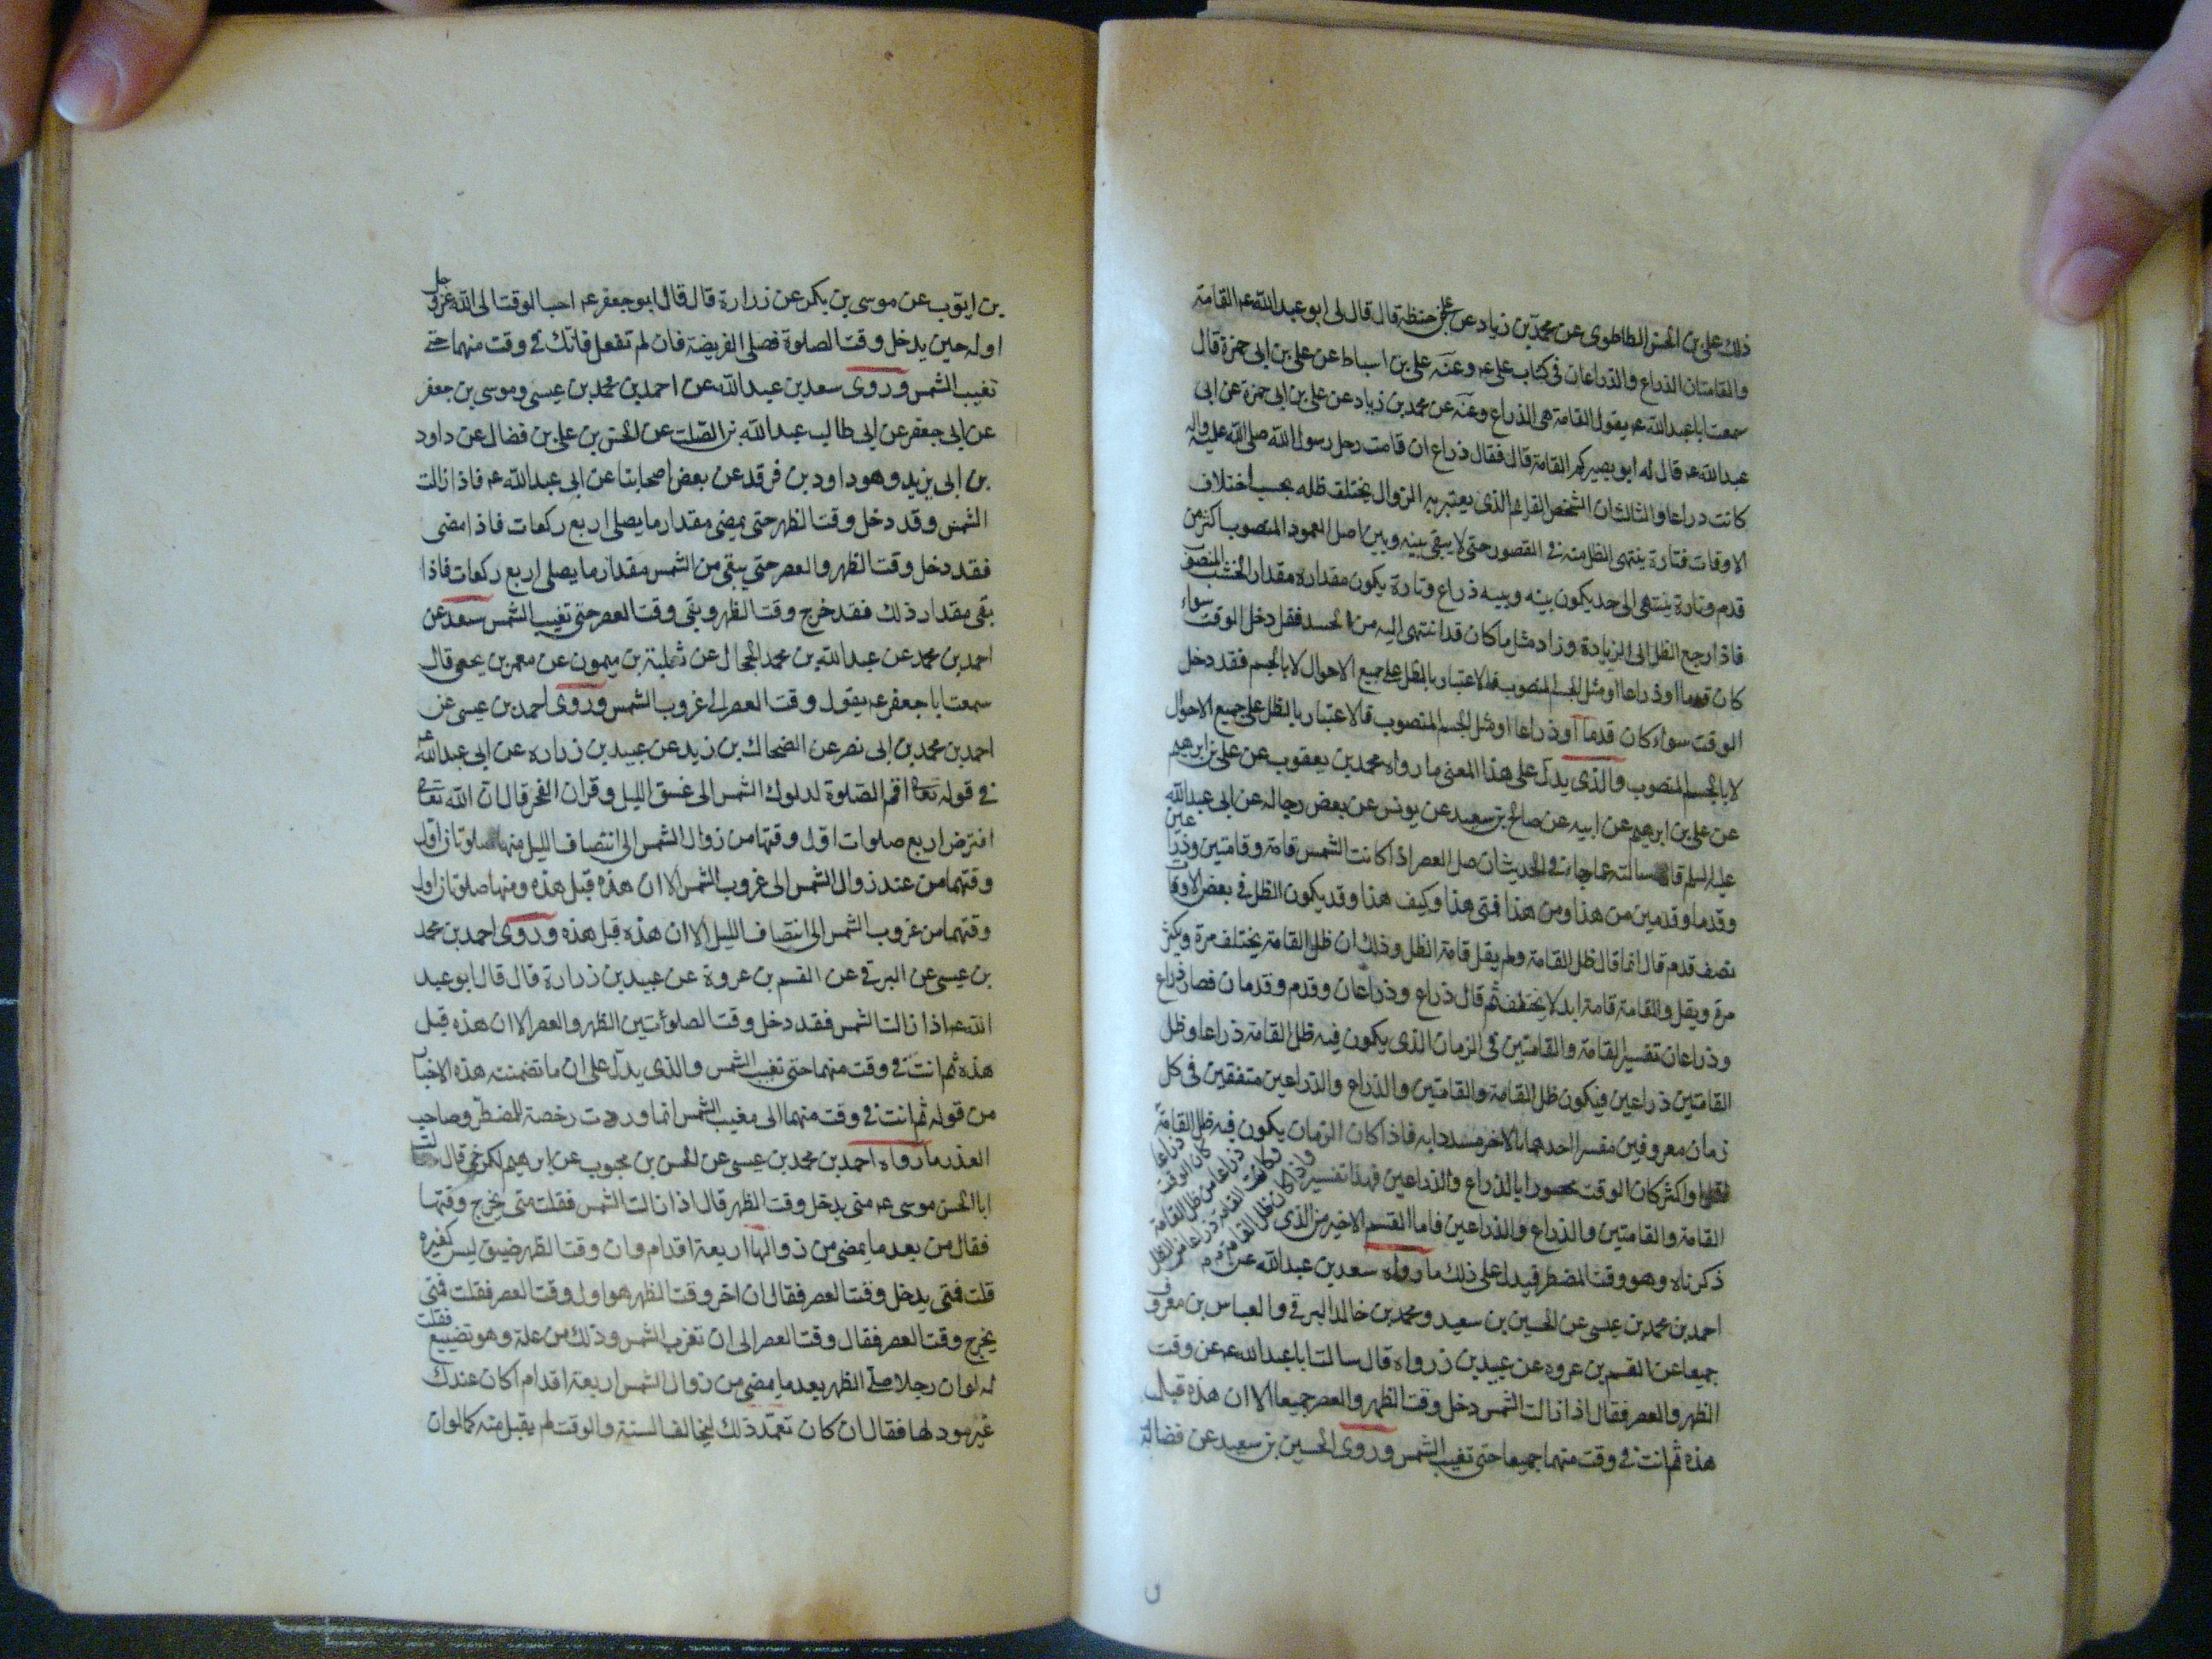 ذلك علي بن الحسن الطاطري عن محمد بن زياد عن علي بن حنظلة قال قال لي ابو عبد الله عه القامة
والقامتان الذراع والذراعان في كتاب علي عه وعنه علي بن اسباط عن علي بن ابي حمزة قال
سمعت ابا عبد الله عه يقول القامة هي الذراع وعنه عن محمد بن زياد عن علي بن ابي حمزة عن ابي
عبد الله عه قال له ابو بصير كم القامة قال فقال ذراع ان قامت رحل رسول الله صلى الله عليه واله
كانت دراعا والثالث ان الشخص القائم الذي يعتبر به الزوال يختلف ظله بحسب اختلاف
الاوقات فتارة ينتهى الظل منه في القصور حتى لا يبقى بينه وبين اصل العمود المنصوب اكثر من
قدم وتارة ينتهى الى حد يكون بينه وبينه ذراع وتارة يكون مقداره مقدار الخشب المنصوب
فاذا رجع الظل الى الزيادة وزاد مثل ما كان قد انتهى اليه من الحسد فقد دخل الوقت سواء
كان قدما او ذراعا او مثل الجسم المنصوب فالاعتبار بالظل على جميع الاحوال لا بالجسم فقد دخل
الوقت سواء كان قدما او ذراعا او مثل الجسم المنصوب فالاعتبار بالظل على جميع الاحوال
لا بالجسم المنصوب والذى يدل على هذا المعنى ما رواه محمد بن يعقوب عن علي بن ابرهيم
عن علي بن ابرهيم عن ابيه عن صالح بن سعيد عن يونس عن بعض رجاله عن ابي عبد الله
عليه السلم قال سالته عما جاء في الحديث ان صل العصر اذا كانت الشمس قامة وقامتين وذراعين
وقدما وقدمين من هذا ومن هذا فمتى هذا وكيف هذا وقد يكون الظل في بعض الاوقات
نصف قدم قال انما قال ظل القامة ولم يقل قامة الظل وذلك ان ظل القامة يختلف مرة ويكثر
مرة ويقل والقامة قامة ابدا لا يختلف ثم قال ذراع وذراعان وقدم وقدمان فصار ذراع
وذراعان تفسير القامة والقامتين في الزمان الذي يكون فيه ظل القامة ذراعا وظل
القامتين ذراعين فيكون ظل القامة والقامتين والذراع والذراعين متفقين في كل
زمان معروفين مفسرا احدهما بالاخر مسددا به فاذا كان الزمان يكون فيه ظل القامة
ذراعا كان الوقت ذراعا من ظل القامة وكانت القامة ذراعا من الظل
واذا كان ظل القامة
اقل او اكثر كان الوقت محصورا بالذراع والذراعين فهذا تفسير
القامة والقامتين والذراع والذراعين فاما القسم الاخير من الذي
ذكرناه وهو وقت المضطر فيدل على ذلك ما رواه سعد بن عبد الله عن
احمد بن محمد بن عيسى عن الحسين بن سعيد ومحمد بن خالد البرقي والعباس بن معروف
جميعا عن القسم بن عروه عن عبيد بن زرواه قال سالت ابا عبد الله عه عن وقت
الظهر والعصر فقال اذا زالت الشمس دخل وقت الظهر والعصر جميعا الا ان هذه قبل
هذه ثم انت في وقت منهما جميعا حتى تغيب الشمس وروى الحسين بن سعيد عن فضالة
بن ايوب عن موسى بن بكر عن زرارة قال قال ابو جعفر عه احب الوقت الى الله عز وجل
اوله حين يدخل وقت الصلوة فصلى الفريضة فان لم تفعل فانك في وقت منهما حتى
تغيب الشمس وروى سعد بن عبد الله عن احمد بن محمد بن عيسى وموسى بن جعفر
عن ابي جعفر عن ابي طالب عبد الله بن الصلت عن الحسن بن علي بن فضال عن داود
بن ابي يزيد وهو داود بن فرقد عن بعض اصحابنا عن ابي عبد الله عه فاذا زالت
الشمس وقد دخل وقت الظهر حتى يمضى مقدار ما يصلى اربع ركعات فاذا مضى
فقد دخل وقت الظهر والعصر حتى يبقى من الشمس مقدار ما يصلى اربع ركعات فاذا
بقى مقدار ذلك فقد خرج وقت الظهر وبقى وقت العصر حتى تغيب الشمس سعد عن
احمد بن محمد عن عبد الله بن محمد الحجال عن ثعلبة بن ميمون عن معمر بن يحيى قال
سمعت ابا جعفر عه يقول وقت العصر الى غروب الشمس وروى احمد بن عيسى عن
احمد بن محمد بن ابي نصر عن الضحاك بن زيد عن عبيد بن زراره عن ابي عبد الله عه
في قوله تعالى اقم الصلوة لدلوك الشمس الى غسق الليل وقران الفجر قال ان الله تعالى
افترض اربع صلوات اول وقتها من زوال الشمس الى انتصاف الليل منها صلوتان اول
وقتهما من عند زوال الشمس الى غروب الشمس الا ان هذه قبل هذه ومنها صلوتان اول
وقتهما من غروب الشمس الى انتصاف الليل الا ان هذه قبل هذه وروى احمد بن محمد
بن عيسى عن البرقي عن القسم بن عروة عن عبيد بن زرارة قال قال ابو عبد
الله عه اذا زالت الشمس فقد دخل وقت الصلوتين الظهر والعصر الا ان هذه قبل
هذه ثم انت في وقت منهما حتى تغيب الشمس والذى يدل على ان ما تضمنته هذه الاخبار
من قوله ثم انت في وقت منهما الى مغيب الشمس انما وردت رخصة للمضطر وصاحب
العذر ما رواه احمد بن محمد بن عيسى عن الحسن بن محبوب عن ابرهيم الكرخي قال سالت
ابا الحسن موسى عه متى يدخل وقت الظهر قال اذا زالت الشمس فقلت متى يخرج وقتها
فقال من بعد ما يمضى من زوالها اربعة اقدام وان وقت الظهر ضيق ليس كغيره
قلت فمتى يدخل وقت العصر فقال ان اخر وقت الظهر هو اول وقت العصر فقلت فمتى
يخرج وقت العصر فقال وقت العصر الى ان تغرب الشمس وذلك من علة وهو تضييع فقلت
له لو ان رجلا صلى الظهر بعد ما يمضى من زوال الشمس اربعة اقدام اكان عندك
غير مود لها فقال ان كان تعمد ذلك ليخالف السنة والوقت لم يقبل منه كما لو ان